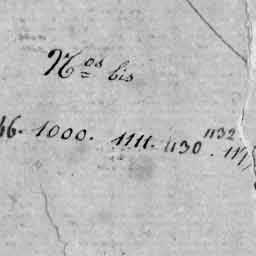 Nos bis
46. 1000. 1111. 1130. 1132